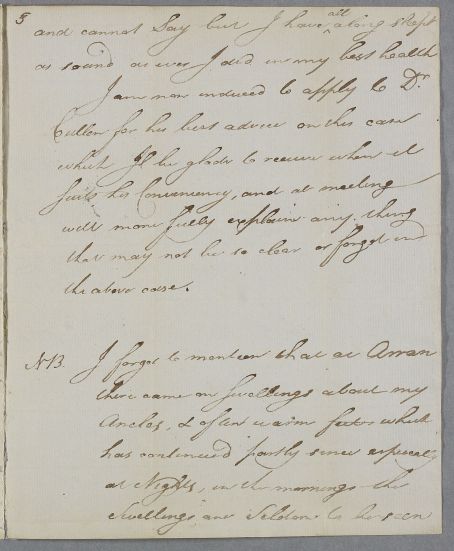 3
and cannot Say but I have all along Slept
as sound as ever I did in my best health
I am now induced to apply to Dr.
Cullen for his best advice on this case
which I'll be glade to receive when it
suits his Conveniency, and at meeting
will more fully explain any thing
that may not be so clear or forgot in
the above case.
NB. I forgot to mention that at Arran
there came on Swellings about my
Ancles, & often warm feet which
has continued partly since especialy
at Nights, in the mornings the
Swellings are Seldom to be seen